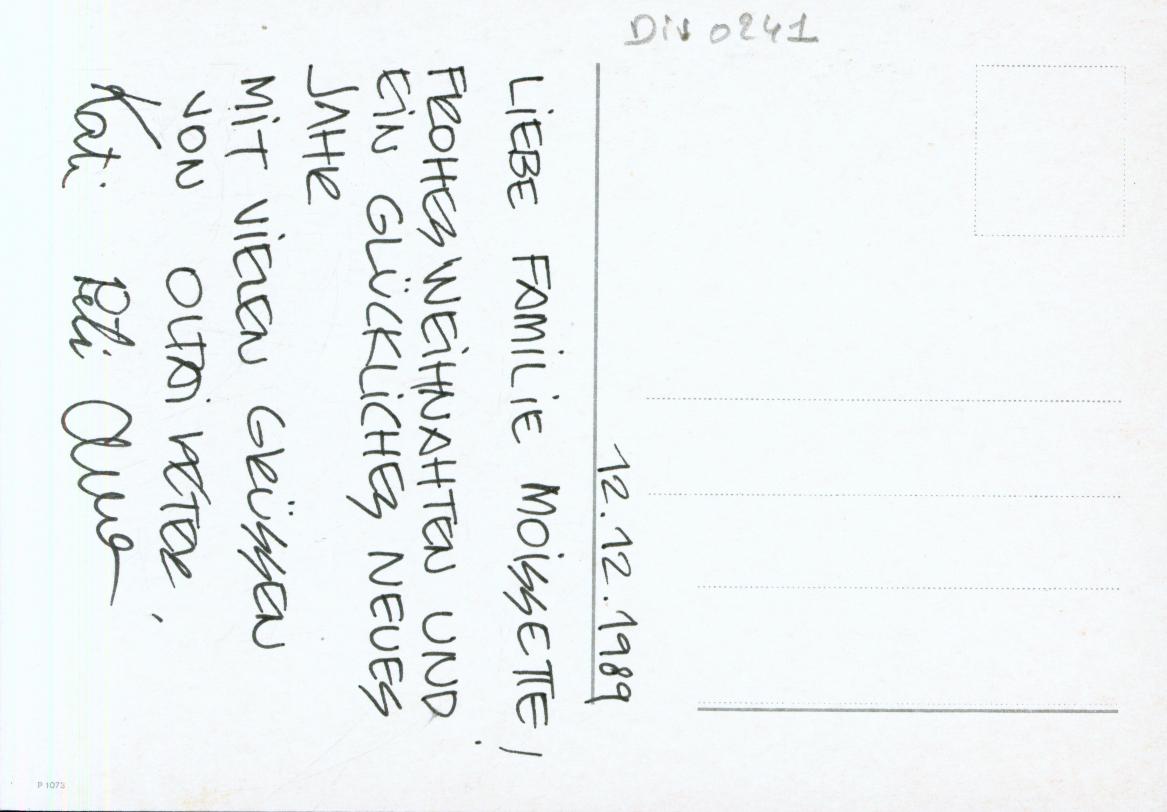 Div 0241
12.12.1989
LIEBE FAMILIE MOISSETTE!
FROHES WEIHNAHTEN UND
EIN GLÜCKLICHES NEUES
JAHR
MIT VIELEN GRÜSSEN
VON OLTAI PETER,
Kati Peti Anna
P 1073